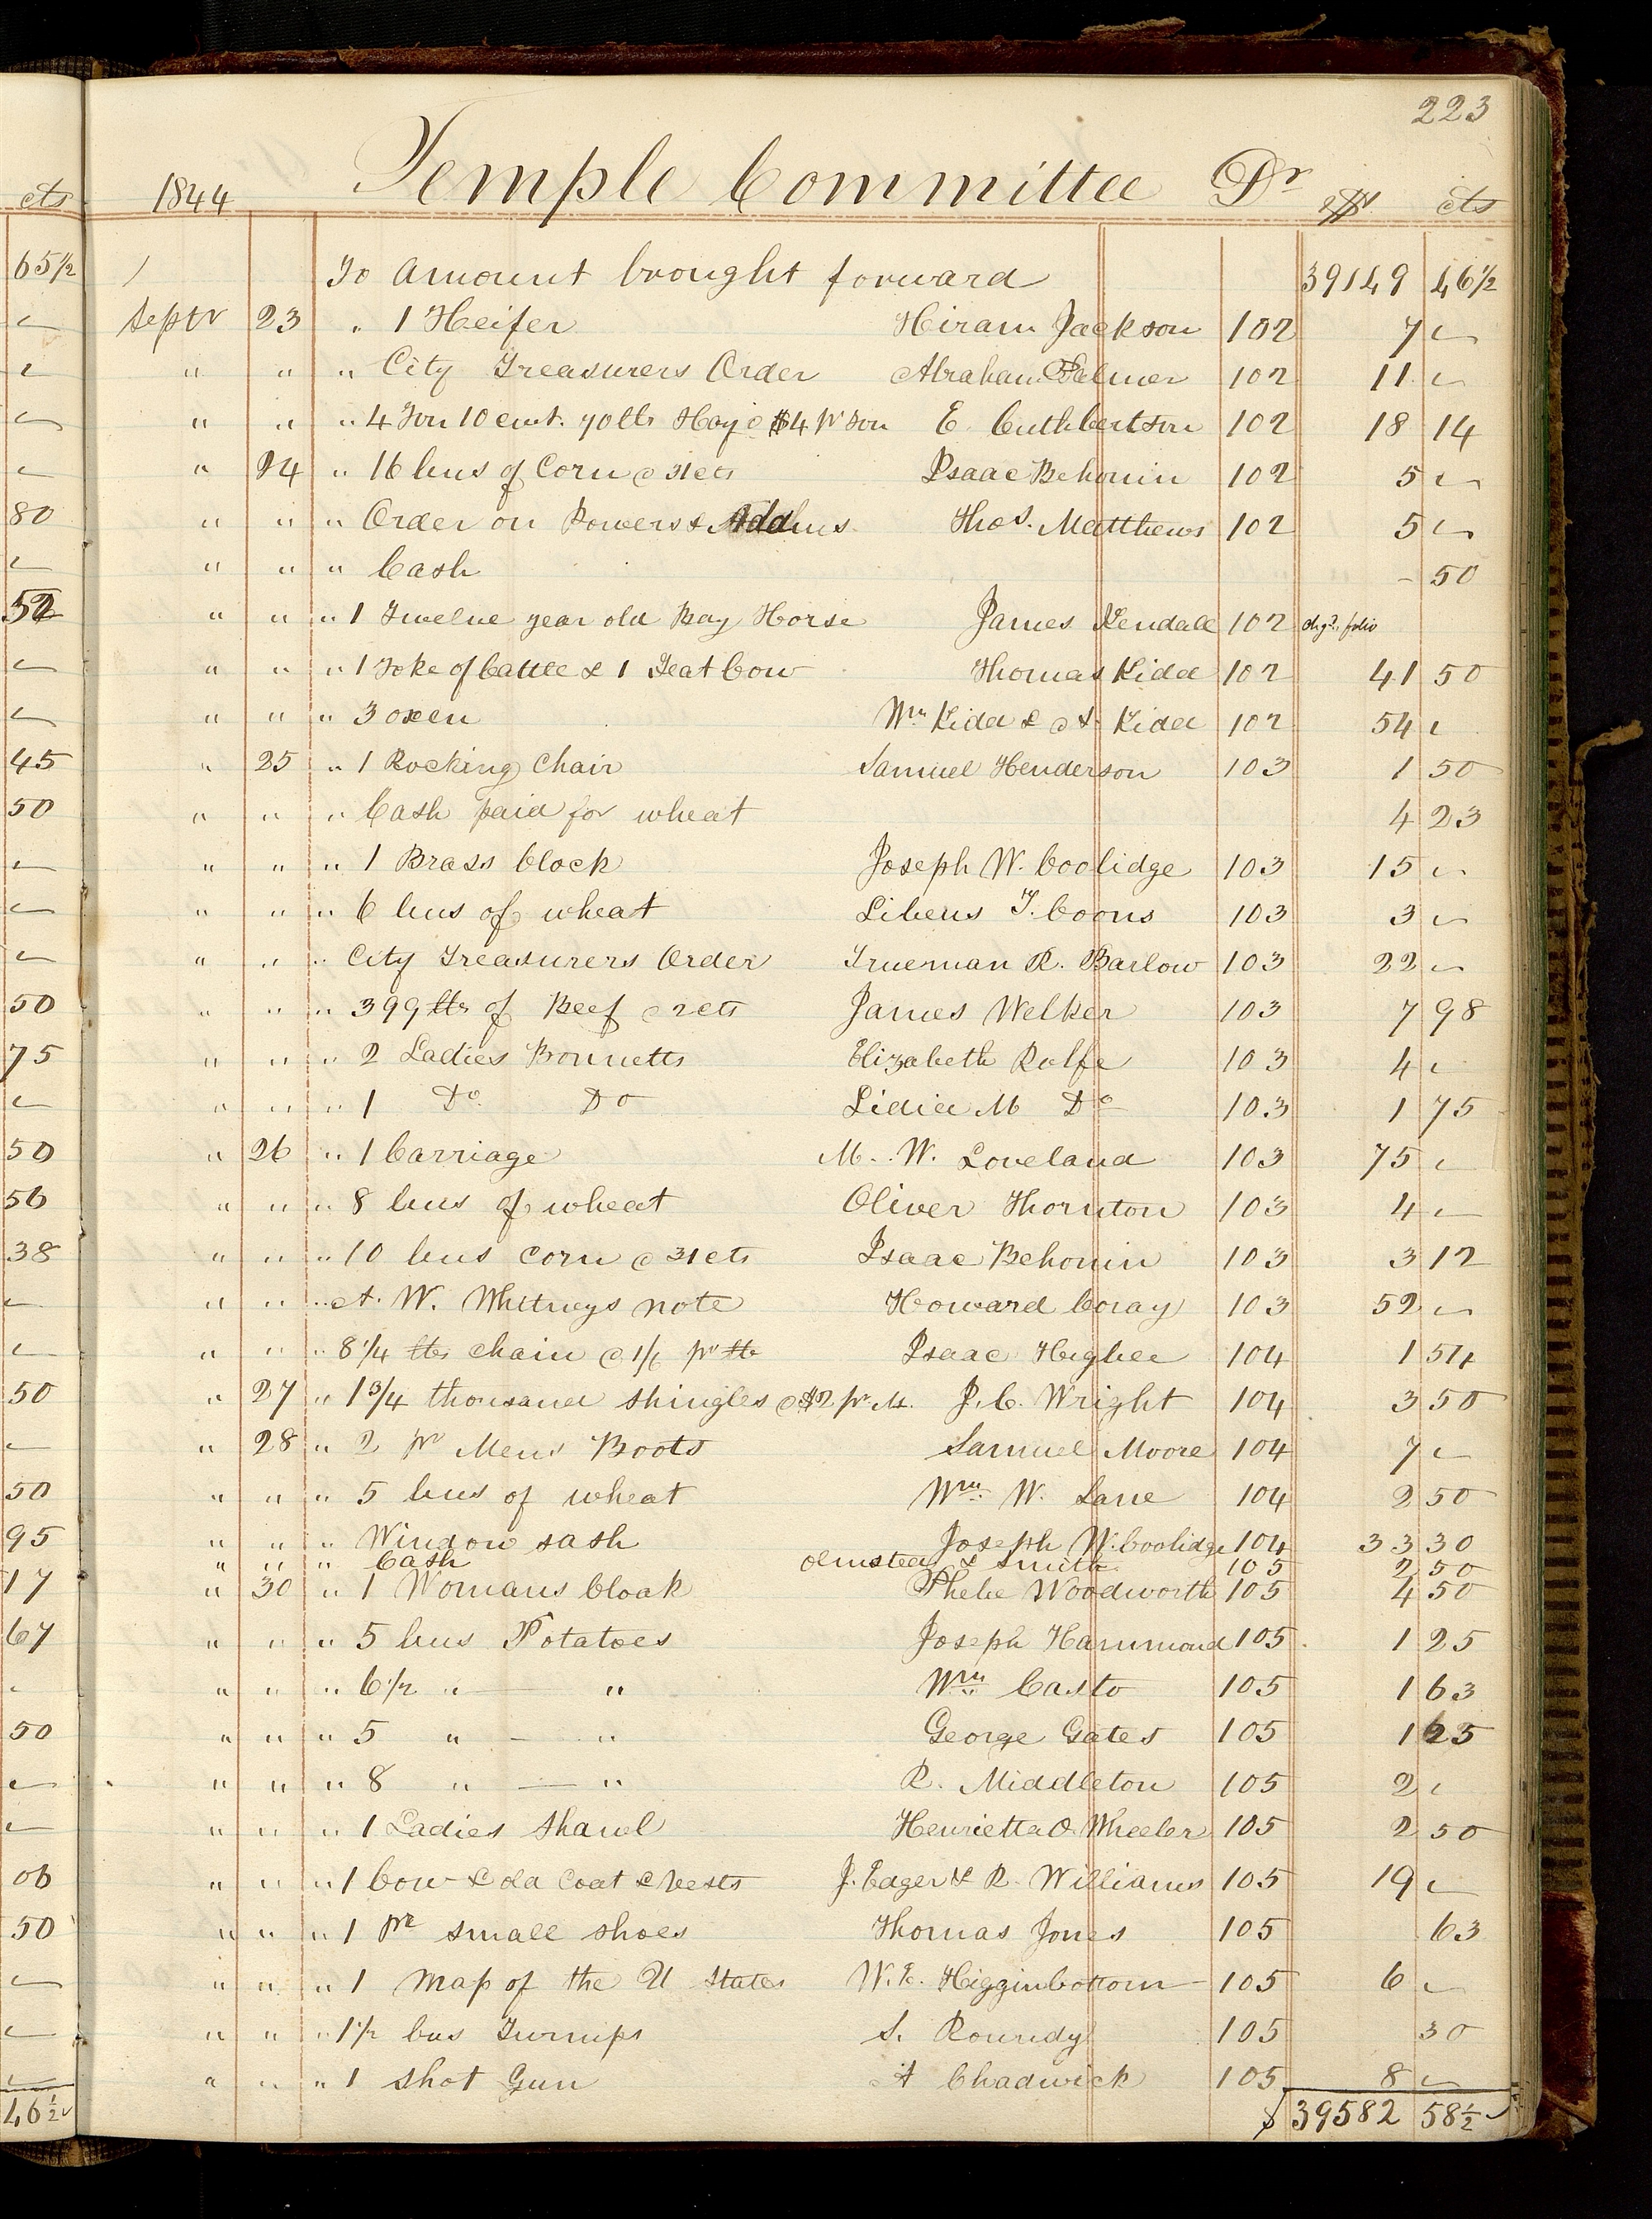 223
cts 1844 Temple Committee Dr $ cts
65½ To Amount brought forward 39149 46½
Septr 23 " 1 Heifer Hiram Jackson 102 7 -
" " " City Treasurers Order Abraham Palmer 102 11 -
" " " 4 Ton 10 cwt. 70 lbs Hay @ $4 pr Ton E. Cuthbertson 102 18 14
" 24 " 16 bus of Corn @ 31 cts Isaac Behonin 102 5 -
80 " " " Order on Powers & Thos. Matthews 102 5 -
" " " Cash - 50
52 " " " 1 Twelve year old Bay Horse James Kendall 102 chgd. folio
" " " 1 Yoke of Cattle & 1 Neat Cow Thomas Kidd 102 41 50
" " " 3 oxen Wm Kidd & A. Kidd 102 54 -
45 " 25 " 1 Rocking Chair Samuel Henderson 103 1 50
50 " " " Cash paid for wheat 4 23
" " " 1 Brass Clock Joseph W. Coolidge 103 15 -
" " " 6 bus of wheat Libeus T. Coons 103 3 -
" " " City Treasurers Order Trueman R. Barlow 103 22 -
50 " " " 399 lbs of Beef @ 2 cts James Welker 103 7 98
75 " " " 2 Ladies Bonnetts Elizabeth Rolfe 103 4 -
" " " 1 Do. Do Lidia M Do 103 1 75
50 " 26 " 1 Carriage M. W. Loveland 103 75 -
56 " " " 8 bus of wheat Oliver Thornton 103 4 -
38 " " " 10 bus corn @ 31 cts Isaac Behonin 103 3 12
" " " A. W. Whitneys note Howard Coray 103 52 -
" " " 8 1/4 lbs chain @ 1/6 pr lb Isaac Higbee 104 1 54
50 " 27 " 1 3/4 thousand shingles @ $2 pr. M. J. C. Wright 104 3 50
" 28 " 2 pr Mens Boots Samuel Moore 104 7 -
50 " " " 5 bus of wheat Wm. W. Lane 104 2 50
95 " " " Window sash Joseph W. Coolidge 104 33 30
" " " Cash Olmstead & Smith 105 2 50
17 " 30 " 1 Womans Cloak Phebe Woodworth 105 4 50
67 " " " 5 bus Potatoes Joseph Hammond 105 1 25
" " " 6 1/2 " — " Wm. Casto 105 1 63
50 " " " 5 " — " George Gates 105 1 25
" " " 8 " — " R. Middleton 105 2 -
" " " 1 Ladies Shawl Henrietta O. Wheeler 105 2 50
06 " " " 1 Cow & old Coat & Vests J. Eager & R. Williams 105 19 -
50 " " " 1 pr small shoes Thomas Jones 105 63
" " " 1 Map of the U States W. E. Higginbottom 105 6 -
" " " 1 1/2 bus Turnips S. Roundy 105 30
" " " 1 Shot Gun A Chadwick 105 8 -
46½ $ 39582 58½